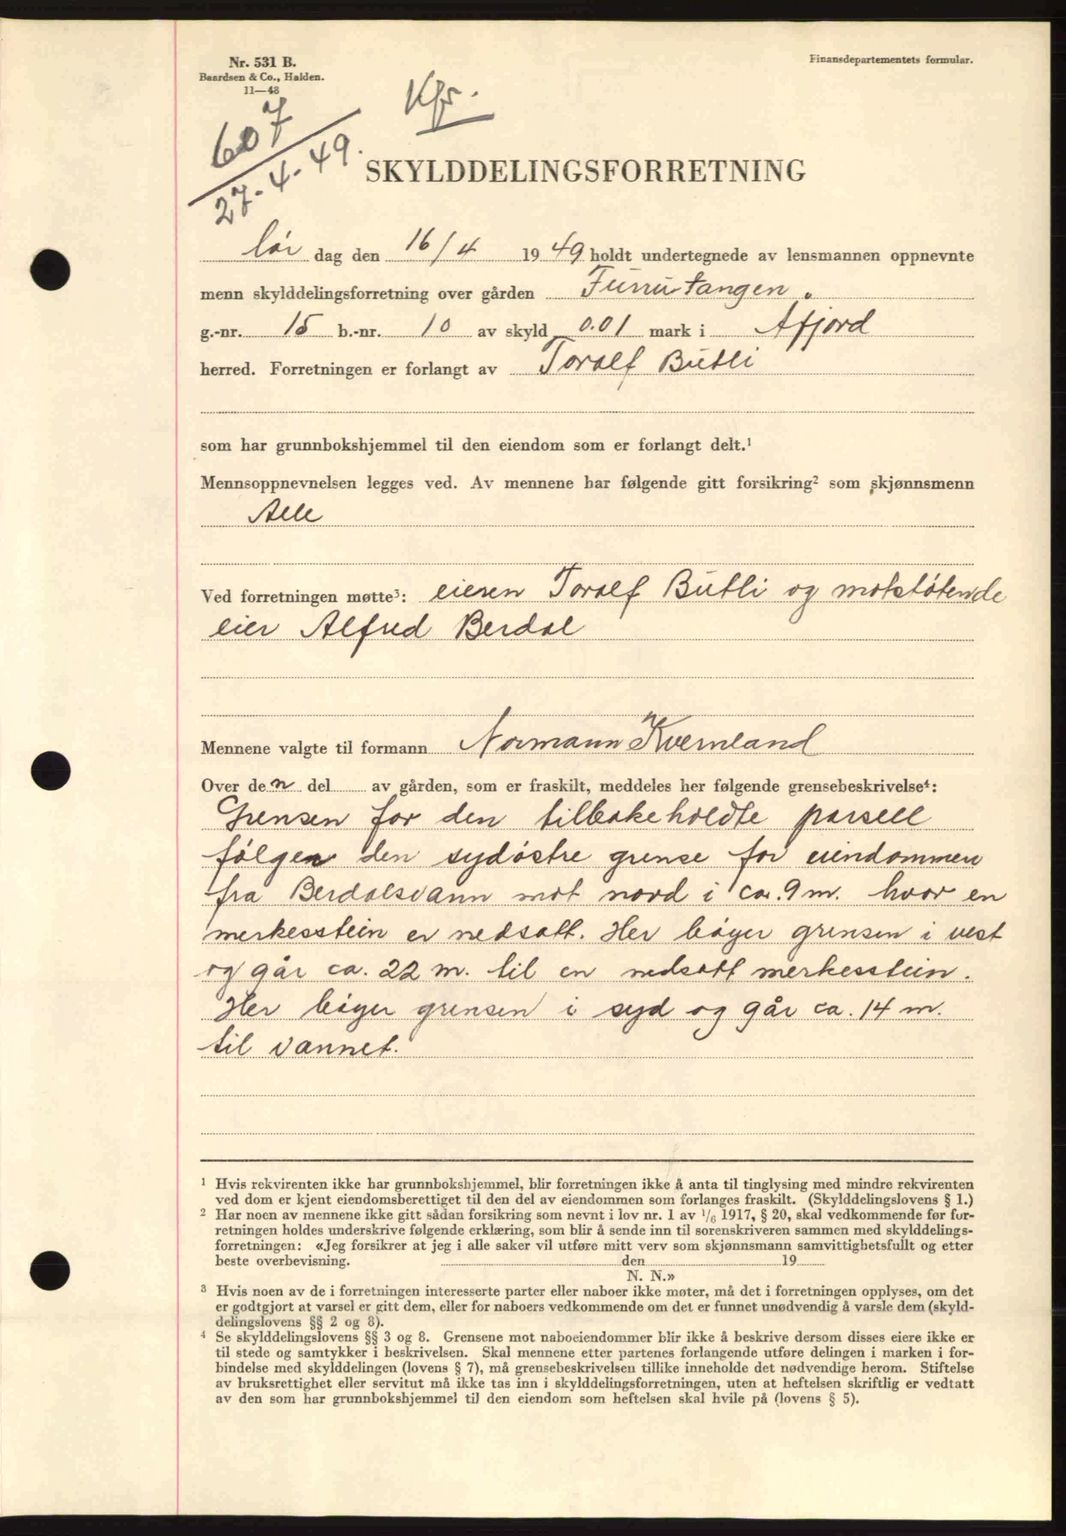 Nr. 531 B.
Baardsen & Co., Halden.
11—48
Finansdepartementets formular.
Kfr.
607
27-4-49.
SKYLDDELINGSFORRETNING
lør dag den 16/4 1949 holdt undertegnede av lensmannen oppnevnte
menn skylddelingsforretning over gården Furutangen
g.-nr. 15 b.-nr. 10 av skyld 0.01 mark i Åfjord
herred. Forretningen er forlangt av Toralf Butli
som har grunnbokshjemmel til den eiendom som er forlangt delt.¹
Mennsoppnevnelsen legges ved. Av mennene har følgende gitt forsikring² som skjønnsmenn
Alle
Ved forretningen møtte³: eieren Toralf Butli og motstøtende
eier Alfred Berdal
Mennene valgte til formann Normann Kvernland
Over den del av gården, som er fraskilt, meddeles her følgende grensebeskrivelse⁴:
Grensen for den tilbakeholdte parsell
følger den sydøstre grense for eiendommen
fra Berdalsvann mot nord i ca. 9 m. hvor en
merkesstein er nedsatt. Her bøyer grensen i vest
og går ca. 22 m. til en nedsatt merkesstein.
Her bøyer grensen i syd og går ca. 14 m.
til vannet.
¹ Hvis rekvirenten ikke har grunnbokshjemmel, blir forretningen ikke å anta til tinglysing med mindre rekvirenten
ved dom er kjent eiendomsberettiget til den del av eiendommen som forlanges fraskilt. (Skylddelingslovens § 1.)
² Har noen av mennene ikke gitt sådan forsikring som nevnt i lov nr. 1 av 1/6 1917, § 20, skal vedkommende før for-
retningen holdes underskrive følgende erklæring, som blir å sende inn til sorenskriveren sammen med skylddelings-
forretningen: «Jeg forsikrer at jeg i alle saker vil utføre mitt verv som skjønnsmann samvittighetsfullt og etter
beste overbevisning. den 19
N. N.»
³ Hvis noen av de i forretningen interesserte parter eller naboer ikke møter, må det i forretningen opplyses, om det
er godtgjort at varsel er gitt dem, eller for naboers vedkommende om det er funnet unødvendig å varsle dem (skyld-
delingslovens §§ 2 og 8).
⁴ Se skylddelingslovens §§ 3 og 8. Grensene mot naboeiendommer blir ikke å beskrive dersom disses eiere ikke er
til stede og samtykker i beskrivelsen. Skal mennene etter partenes forlangende utføre delingen i marken i for-
bindelse med skylddelingen (lovens § 7), må grensebeskrivelsen tillike inneholde det nødvendige herom. Stiftelse
av bruksrettighet eller servitut må ikke tas inn i skylddelingsforretningen, uten at heftelsen skriftlig er vedtatt
av den som har grunnbokshjemmel til den eiendom som heftelsen skal hvile på (lovens § 5).